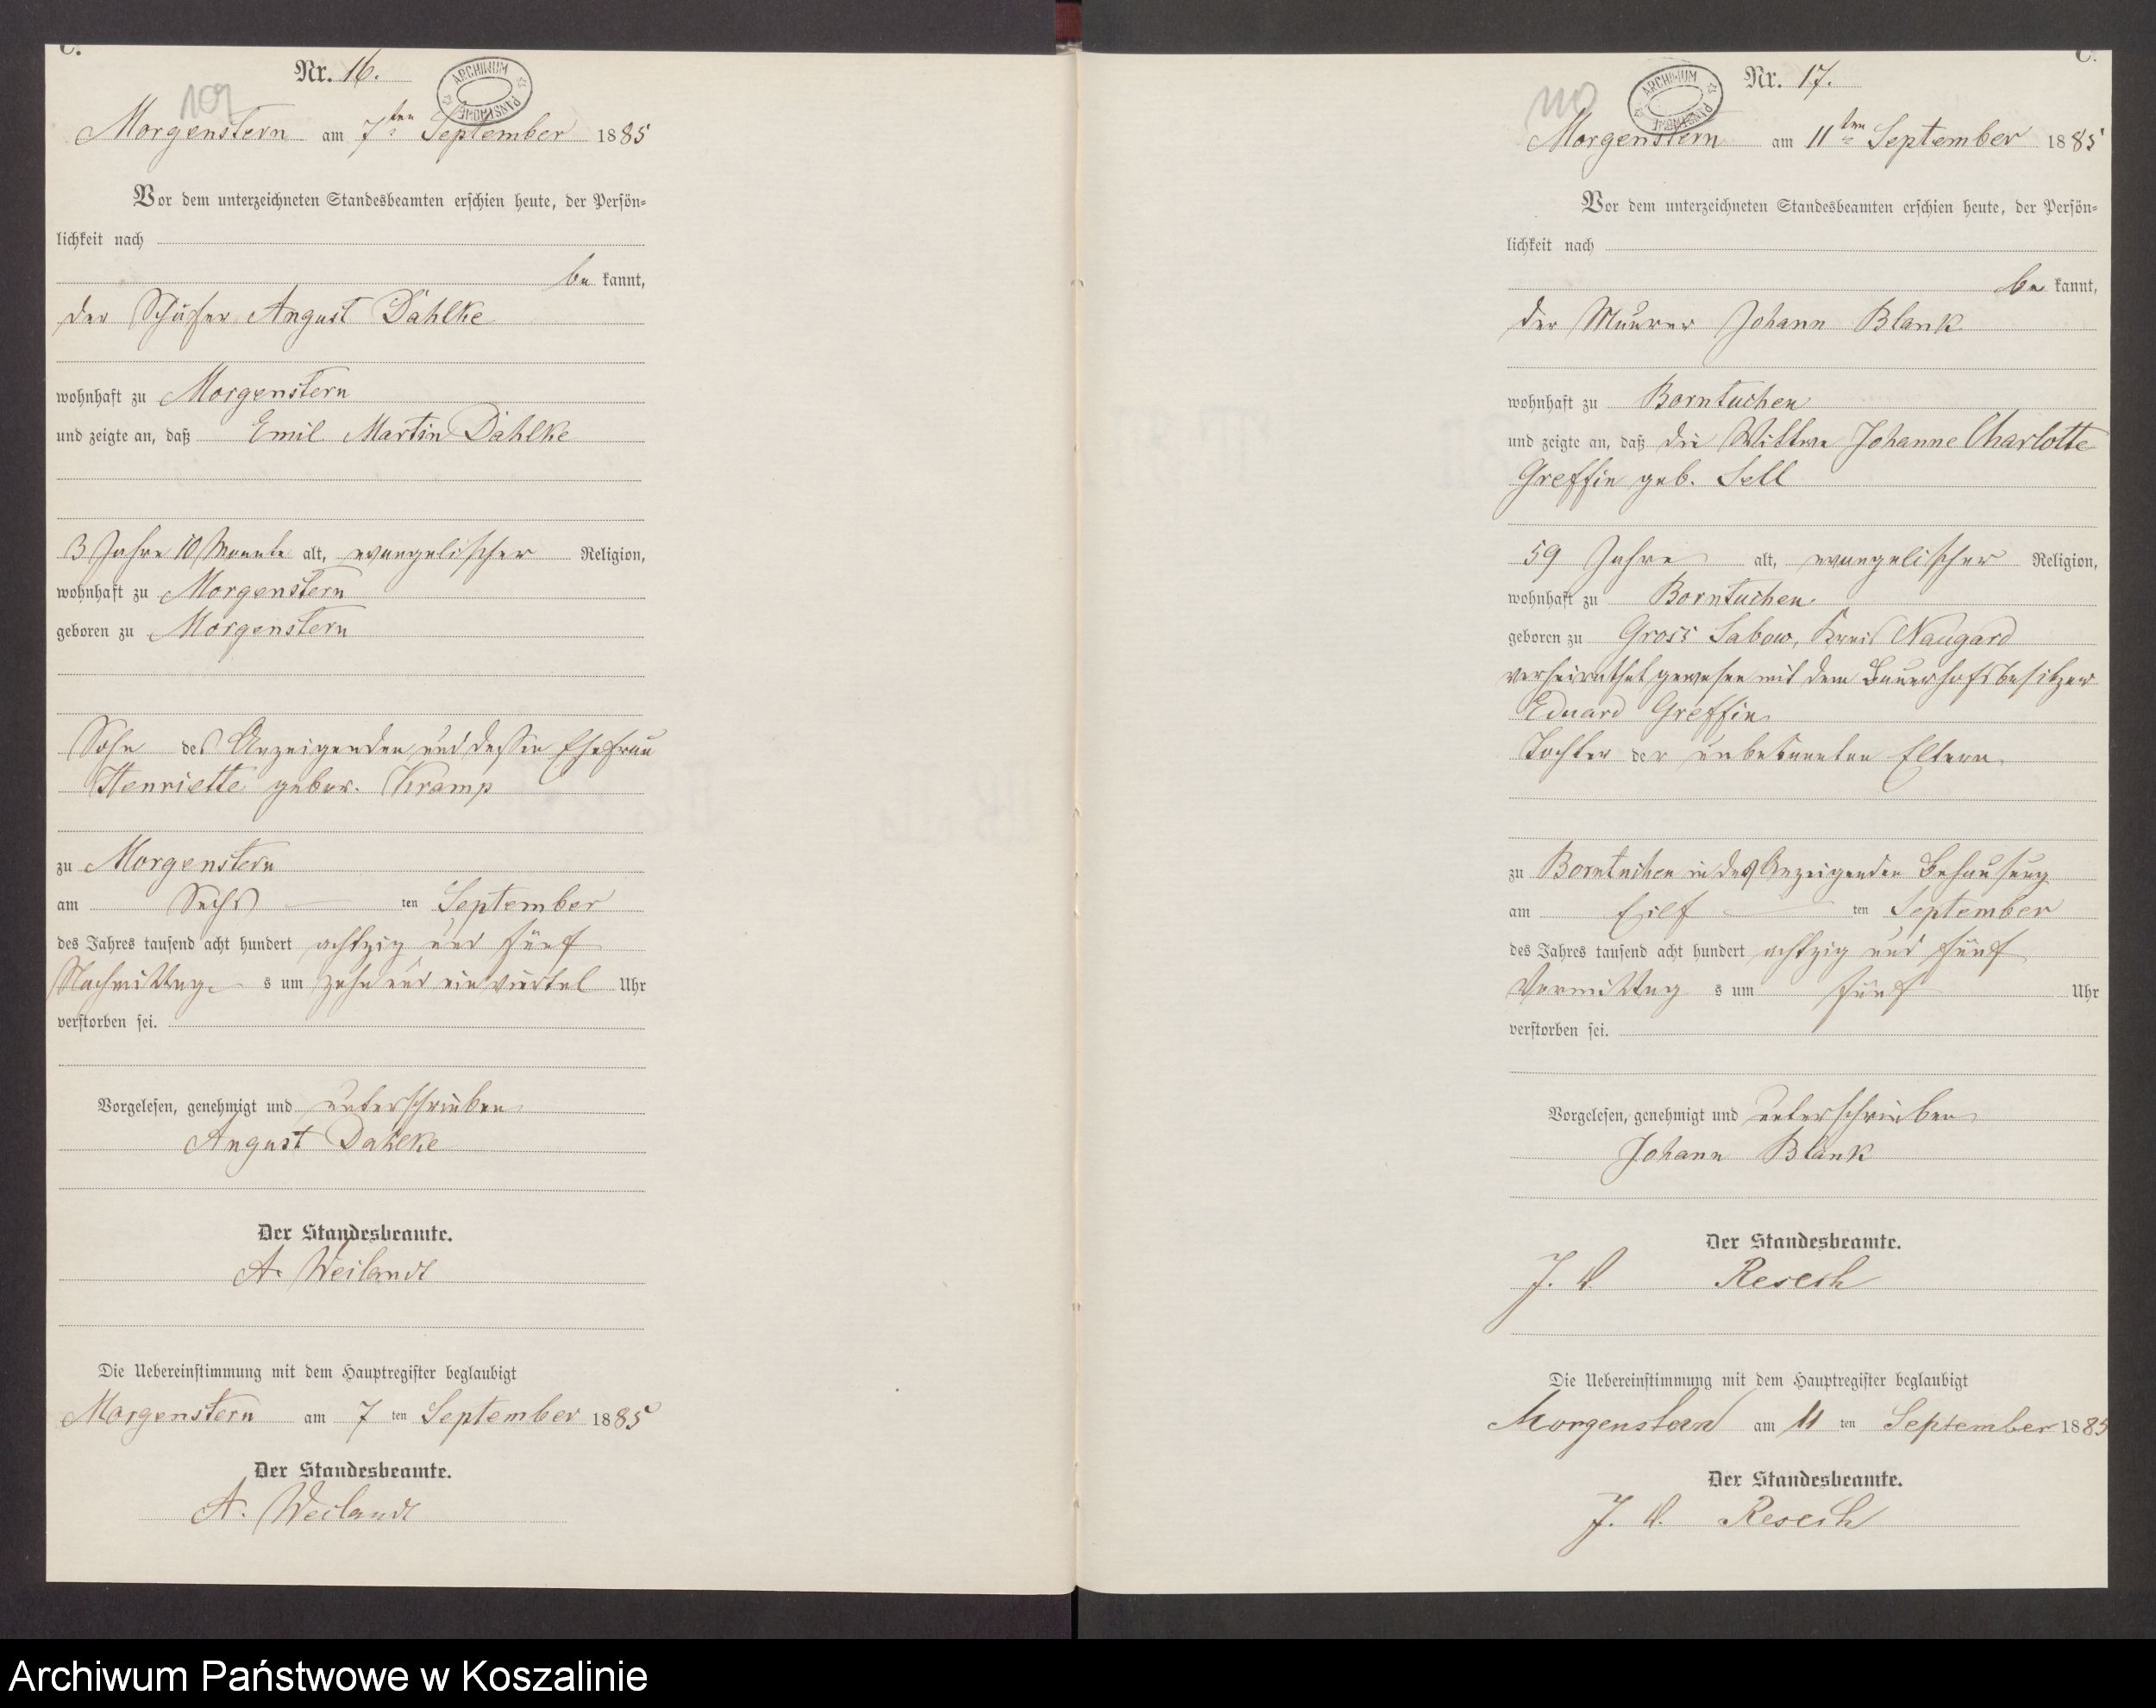 C.
Nr. 16.
109
ARCHIWUM PAŃSTWOWE
Morgenstern am 7ten September 1885
Vor dem unterzeichneten Standesbeamten erschien heute, der Persön=
lichkeit nach
be kannt,
der Schäfer August Dahlke
wohnhaft zu Morgenstern
und zeigte an, daß Emil Martin Dahlke
3 Jahre 10 Monate alt, evangelischer Religion,
wohnhaft zu Morgenstern
geboren zu Morgenstern
Sohn des Anzeigenden und dessen Ehefrau
Henriette gebor. Kramp
zu Morgenstern
am Sechs ten September
des Jahres tausend acht hundert achtzig und fünf
Nachmittag s um zehn und ein viertel Uhr
verstorben sei.
Vorgelesen, genehmigt und unterschrieben
August Dahlke
Der Standesbeamte.
A. Weilandt
Die Uebereinstimmung mit dem Hauptregister beglaubigt
Morgenstern am 7 ten September 1885
Der Standesbeamte.
A. Weilandt
C.
Nr. 17.
110
ARCHIWUM PAŃSTWOWE
Morgenstern am 11ten September 1885
Vor dem unterzeichneten Standesbeamten erschien heute, der Persön=
lichkeit nach
be kannt,
der Maurer Johann Blank
wohnhaft zu Borntuchen
und zeigte an, daß die Wittwe Johanne Charlotte
Greffin geb. Sell
59 Jahre alt, evangelischer Religion,
wohnhaft zu Borntuchen
geboren zu Gross Sabow, Kreis Naugard
verheirathet gewesen mit dem Bauerhofsbesitzer
Eduard Greffin
Tochter der unbekannten Eltern
zu Borntuchen in des Anzeigenden Behausung
am Eilf ten September
des Jahres tausend acht hundert achtzig und fünf
Vormittag s um fünf Uhr
verstorben sei.
Vorgelesen, genehmigt und unterschrieben
Johann Blank
Der Standesbeamte.
J. V. Resech
Die Uebereinstimmung mit dem Hauptregister beglaubigt
Morgenstern am 11 ten September 1885
Der Standesbeamte.
J. V. Resech
Archiwum Państwowe w Koszalinie